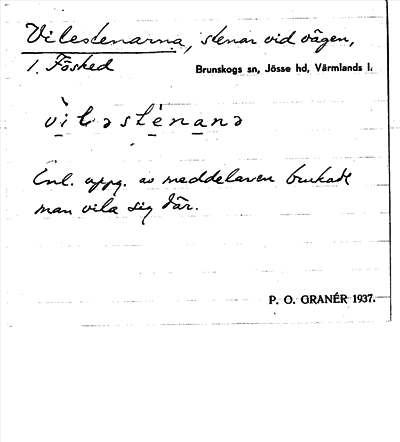 Vilestenarna, stenar vid vägen,
1. Fösked
Brunskogs sn, Jösse hd, Värmlands l.
vìləsténanə
Enl. uppg. av meddelaren brukade
man vila sig där.
P. O. GRANÉR 1937.